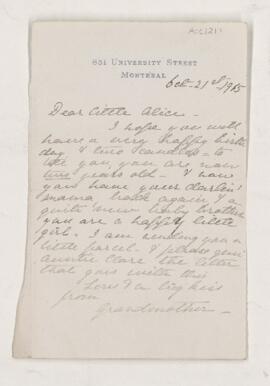 Acc 1211
651 University Street
Montreal
Oct - 21st 1915
Dear little Alice -
I hope you will
have a very happy birth
day & two candles - to
tell you, you are now
two years old - & now
you have your darlin'
mama back again & a
quite new baby brother
you are a happy little
girl. I am sending you a
little parcel. & please give
auntie Clare the letter
that goes with this
Love & a big kiss
from
Grandmother -